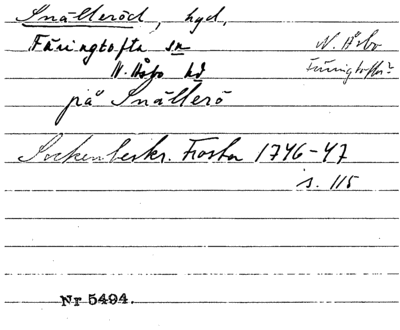 Snälleröd, hyd.
Färingtofta sn
N. Åsbo
N. Åsbo hd
Färingtofta?
på Snällerö
Sockenbeskr. Frosta 1746-47
s. 115
Nr 5494.